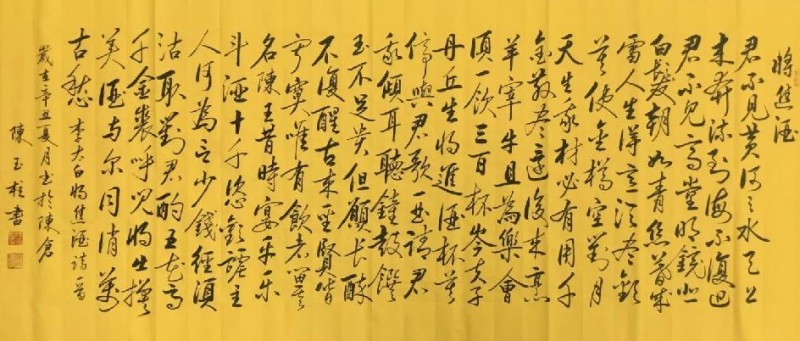 將進酒
君不見黃河之水天上
来奔流到海不復迴
君不見高堂明鏡悲
白髮朝如青絲暮成
雪人生得意須盡歡
莫使金樽空對月
天生我材必有用千
金散盡還復来烹
羊宰牛且為樂會
須一飲三百杯岑夫子
丹丘生將進酒杯莫
停與君歌一曲請君
我傾耳聽鐘鼓饌
玉不足貴但願長醉
不復醒古来聖賢皆
寂寞唯有飲者留其
名陳王昔時宴平樂
斗酒十千恣歡謔主
人何為言少錢徑須
沽取對君酌五花馬
千金裘呼兒將出換
美酒与尔同消萬
古愁 李太白將進酒詩一首
歲在辛丑夏月書於陳倉
陳玉柱書